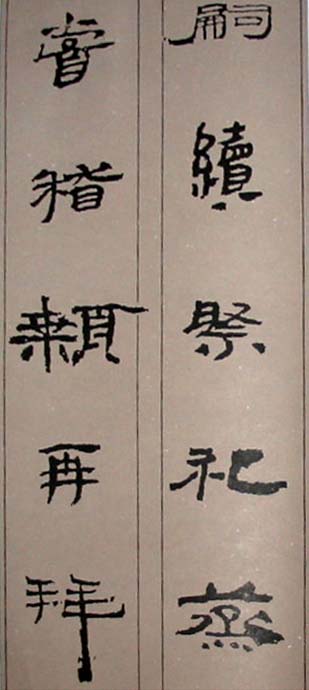 嗣續祭祀蒸
嘗稽顙再拜